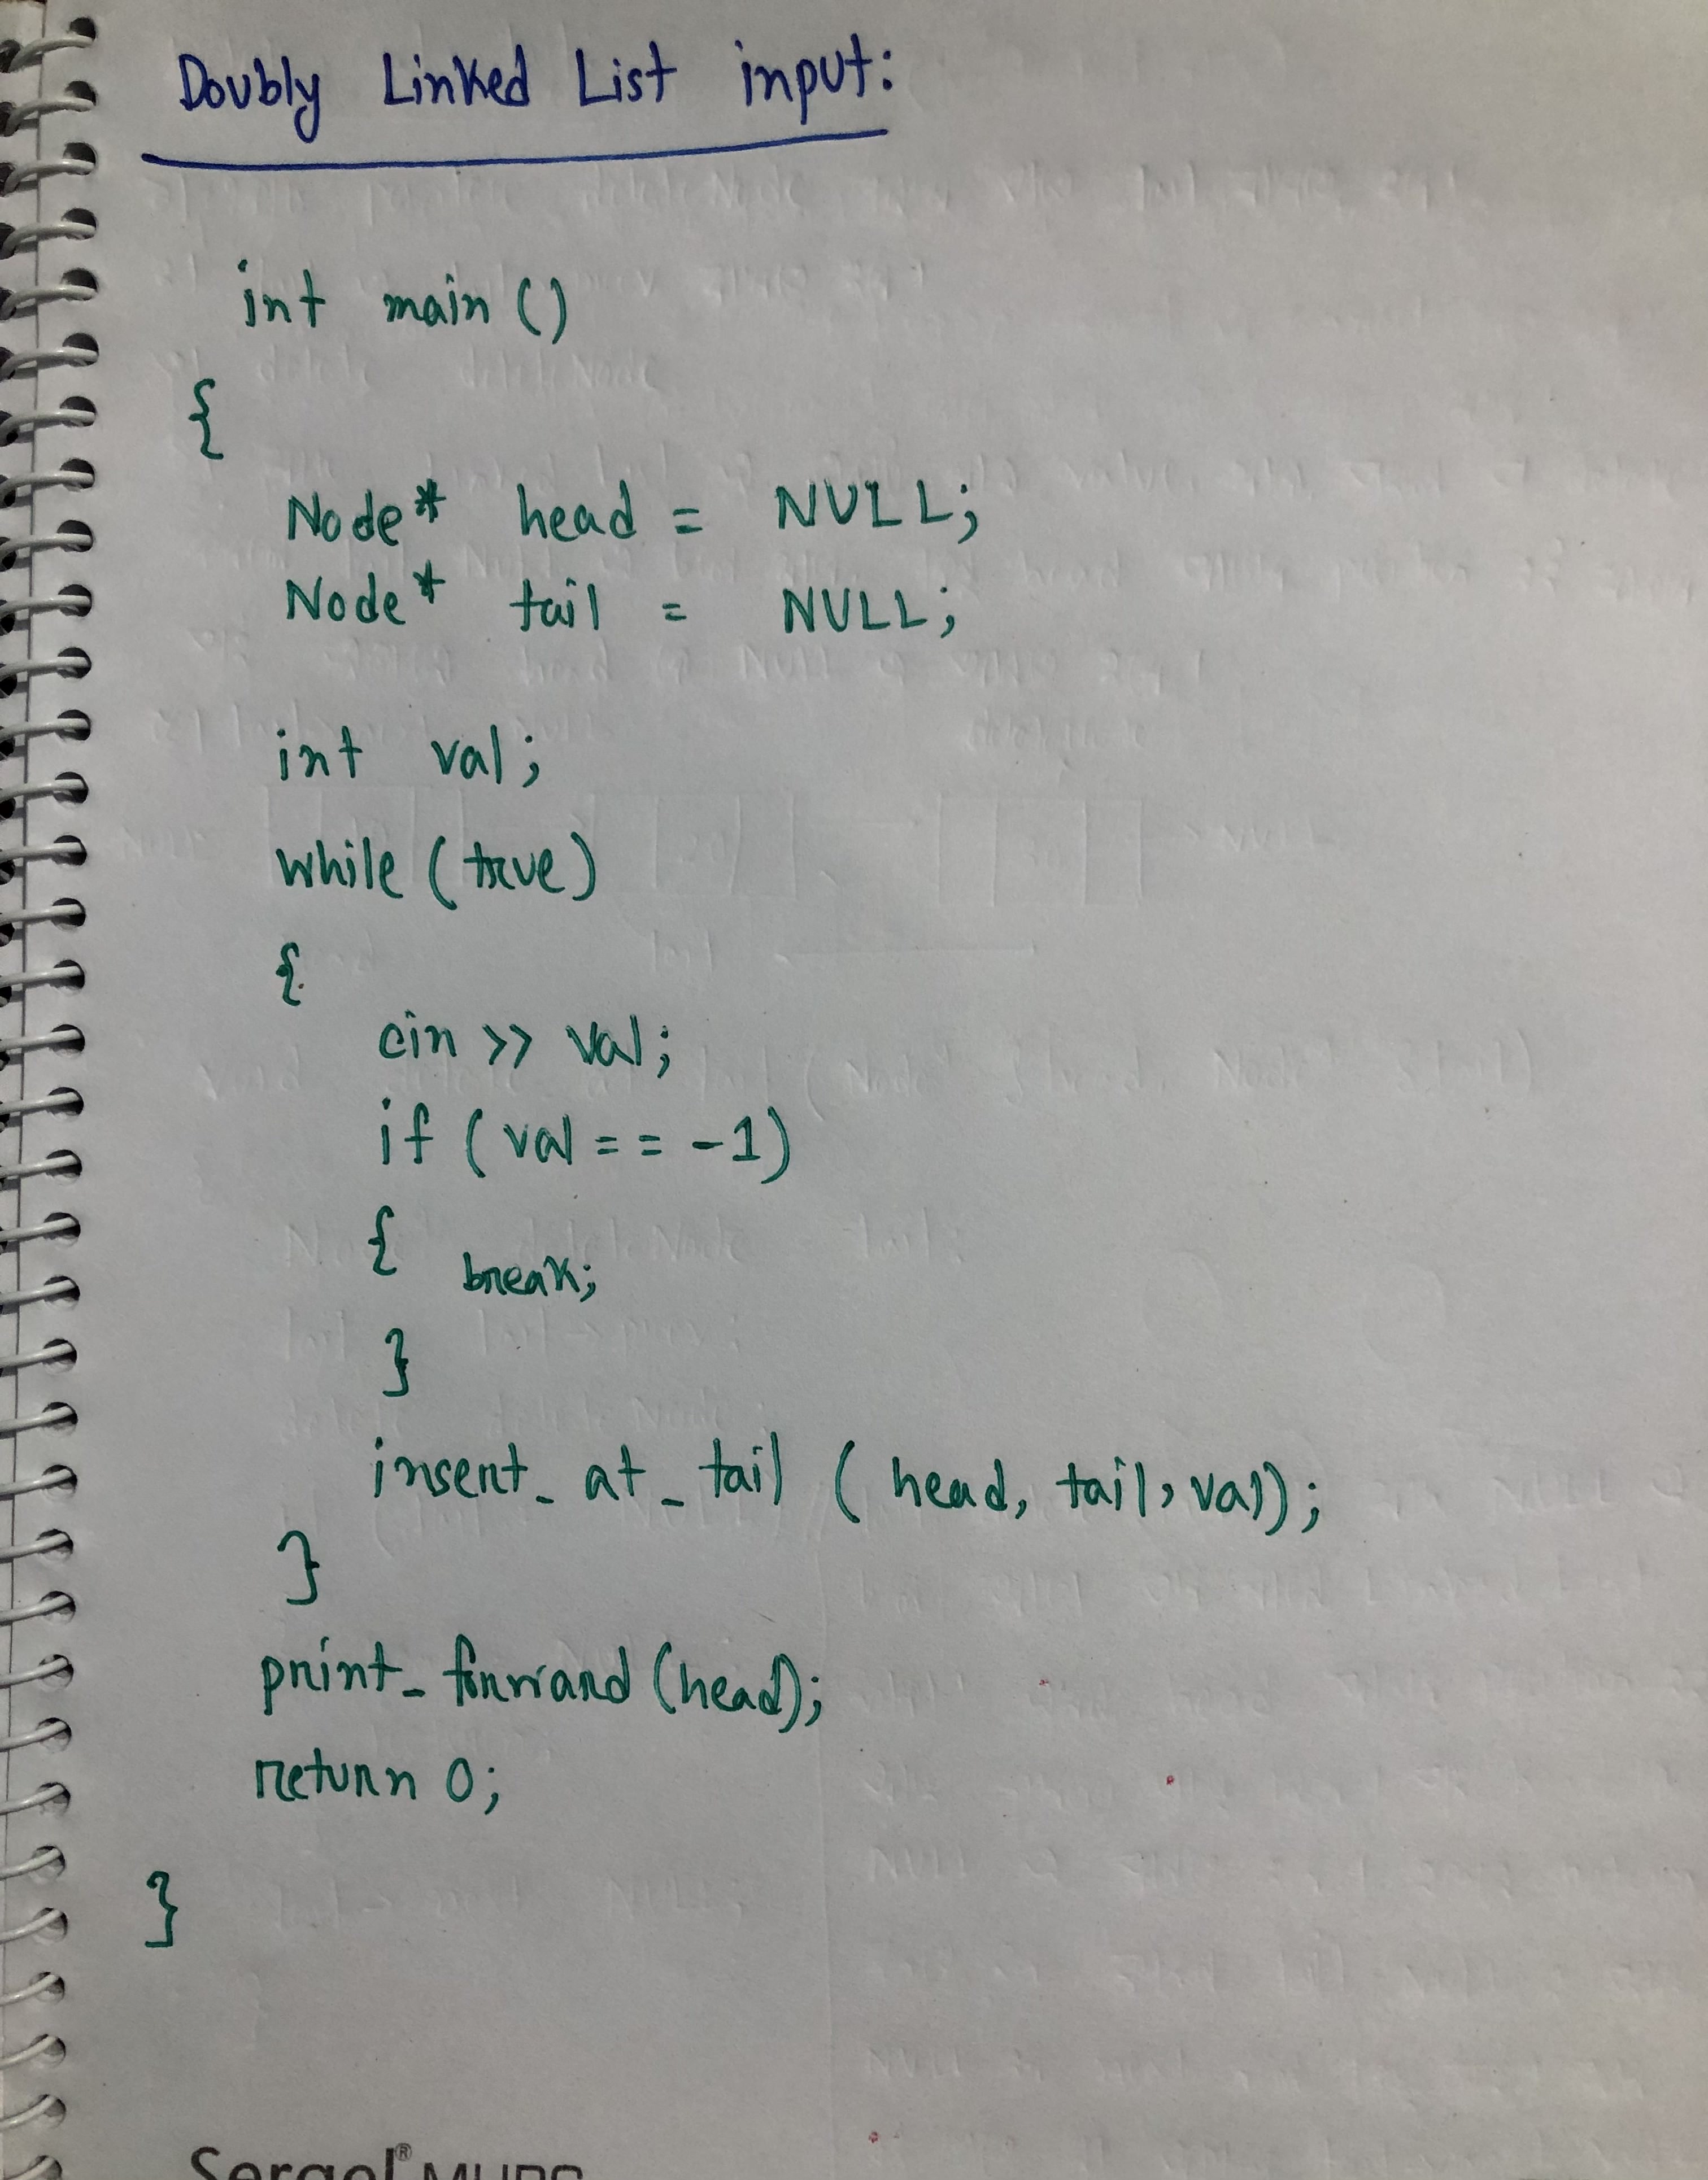 Doubly Linked List input:
int main ()
{
Node* head = NULL;
Node* tail = NULL;
int val;
while (true)
{
cin >> val;
if (val == -1)
{ break;
}
insert_at_tail (head, tail, val);
}
print_forward (head);
return 0;
}
Sergel®